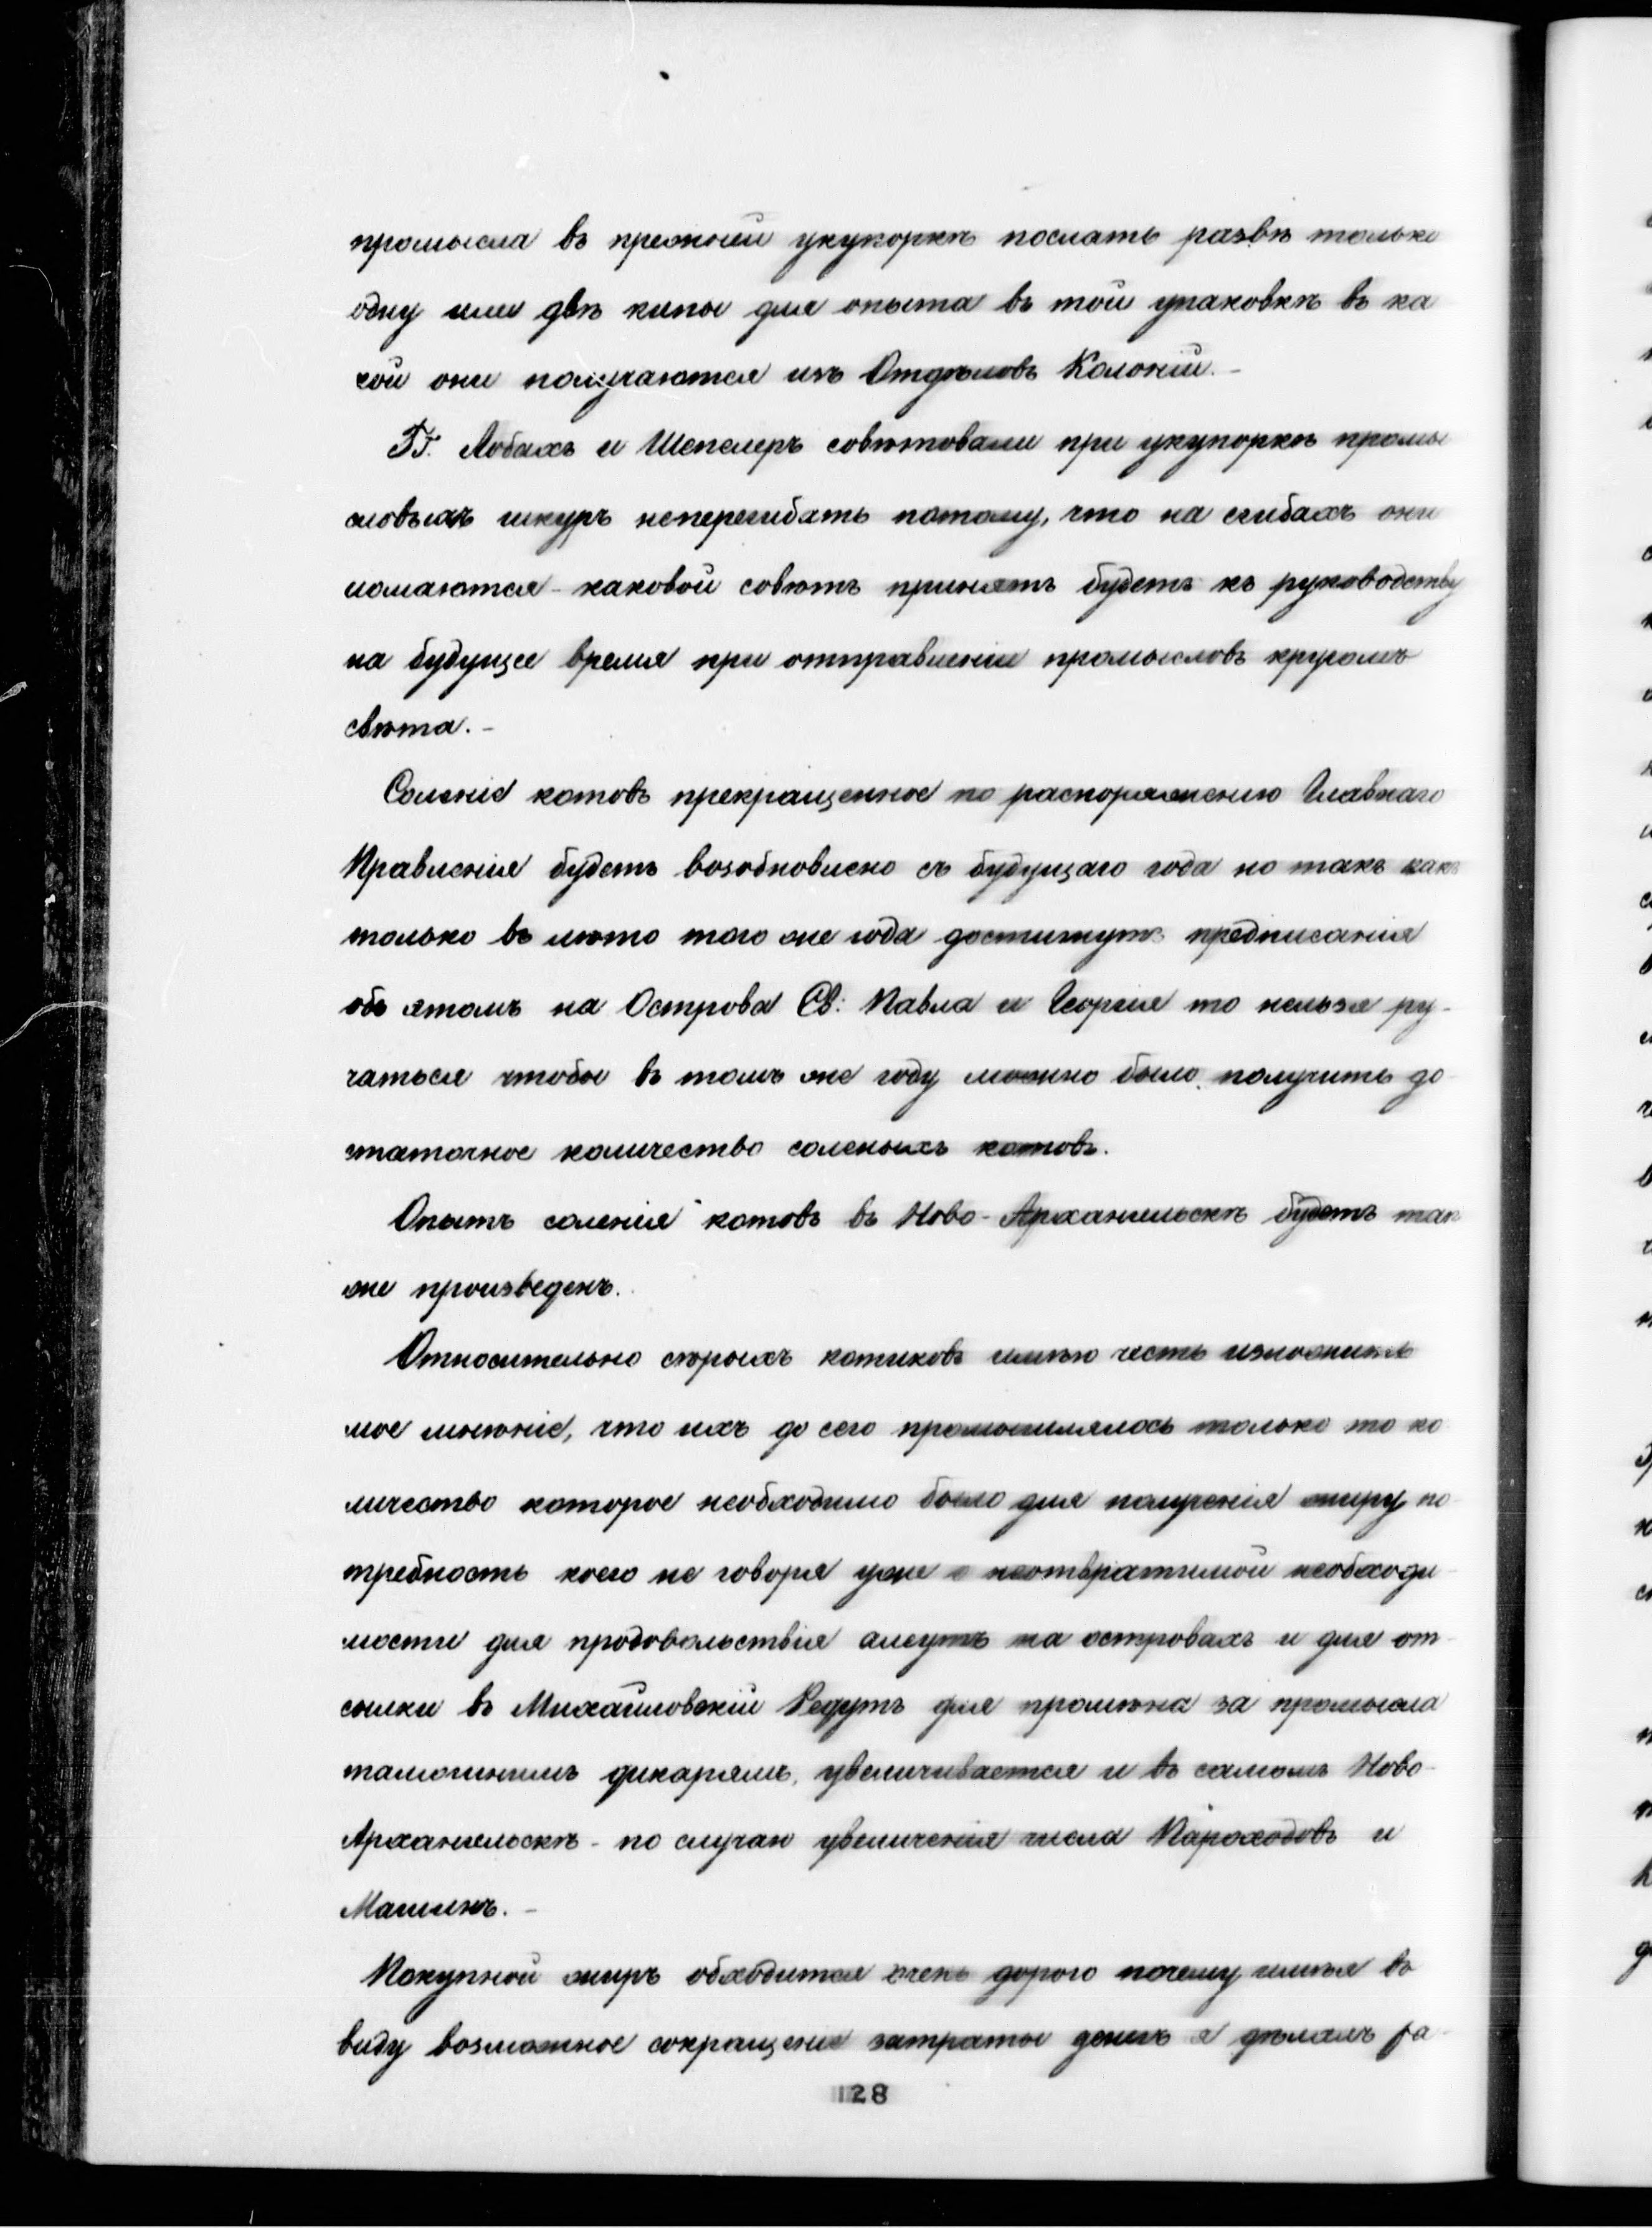 промысла въ прежней укупоркѣ послать развѣ только
одну или двѣ кипы для опыта въ той упаковкѣ въ ка
кой они получаются изъ Отдѣловъ Колоній.-
Гг. Лобахъ и Шепелеръ совѣтовали при укупоркѣ промы
словыхъ шкуръ неперегибать потому, что на сгибахъ они
ломаются - каковой совѣтъ принятъ будетъ къ руководству
на будущее время при отправленіи промысловъ кругомъ
свѣта.-
Соленіе котовъ прекращенное по распоряженію Главнаго
Правленія будетъ возобновлено съ будущаго года но такъ какъ
только въ лѣто того же года достигнутъ предписанія
объ этомъ на Острова Св: Павла и Георгія то нельзя ру-
чаться чтобы въ томъ же году можно было получить до
статочное количество соленыхъ котовъ.
Опытъ соленія котовъ въ Ново-Архангельскѣ будетъ так
же произведенъ.
Относительно сѣрыхъ котиковъ имѣю честь изложить
мое мнѣніе, что ихъ до сего промышлялось только то ко
личество которое необходимо было для полученія жиру по-
требность коего не говоря уже о неотвратимой необходи-
мости для продовольствія алеутъ на островахъ и для от-
сылки въ Михайловскій Редутъ для промѣна за промысла
тамошнимъ дикарямъ, увеличивается и въ самомъ Ново-
Архангельскѣ - по случаю увеличенія числа Пароходовъ и
Машинъ.-
Покупной жиръ обходится очень дорого почему имѣя въ
виду возможное сокращеніе затраты денегъ я дѣлалъ ра-
128